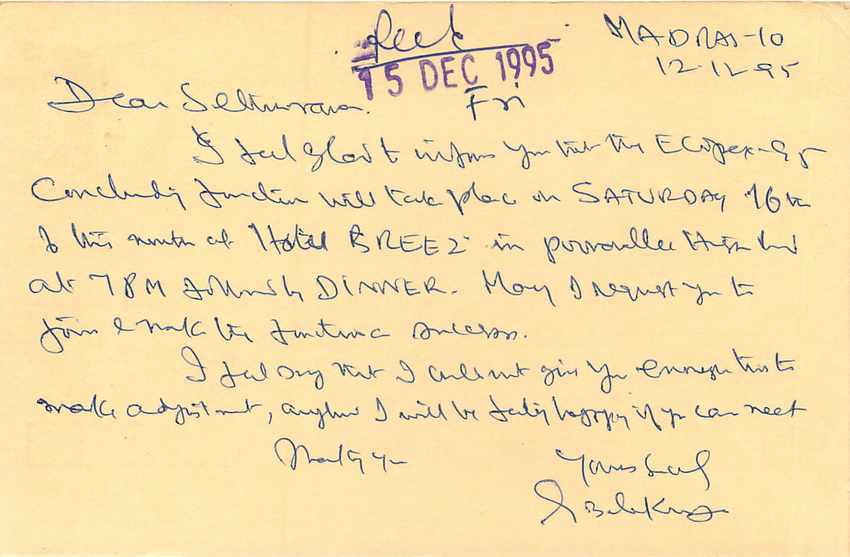 Recd
15 DEC 1995
Fri
MADRAS-10
12-12-95
Dear
I feel glad to inform you that the
Concluding function will take place on SATURDAY 16th
of this month at Hotel BREEZ in High
at 7 PM followed by DINNER. May I request you to
join & make the function a success.
I feel sorry that I could not give you enough time to
make adjustment, anyhow I will be feeling happy if you can meet
Thank you
Yours